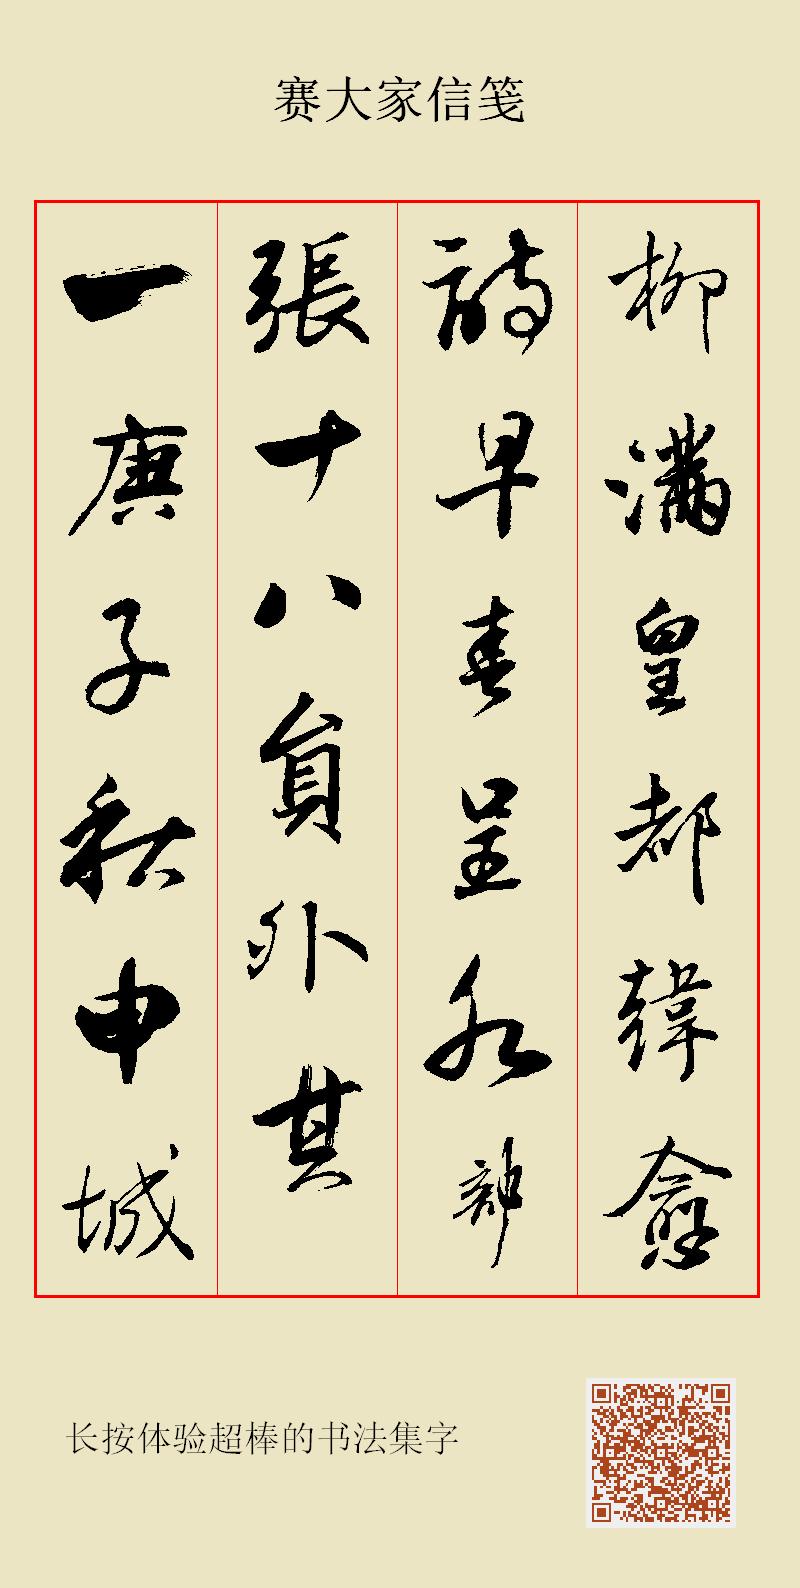 赛大家信笺
柳滿皇都韓愈
詩早春呈水部
張十八員外其
一庚子秋申城
长按体验超棒的书法集字